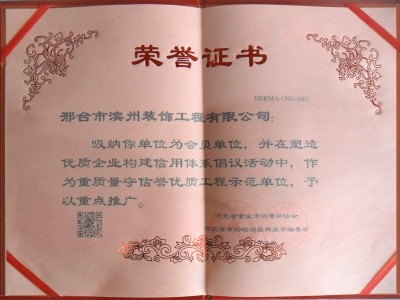 荣誉证书
HBRMA-1501-1001
邢台市滨州装饰工程有限公司:
吸纳你单位为会员单位，并在塑造
优质企业构建信用体系倡议活动中，作
为重质量守信誉优质工程示范单位，予
以重点推广。
河北省企业市场营销协会